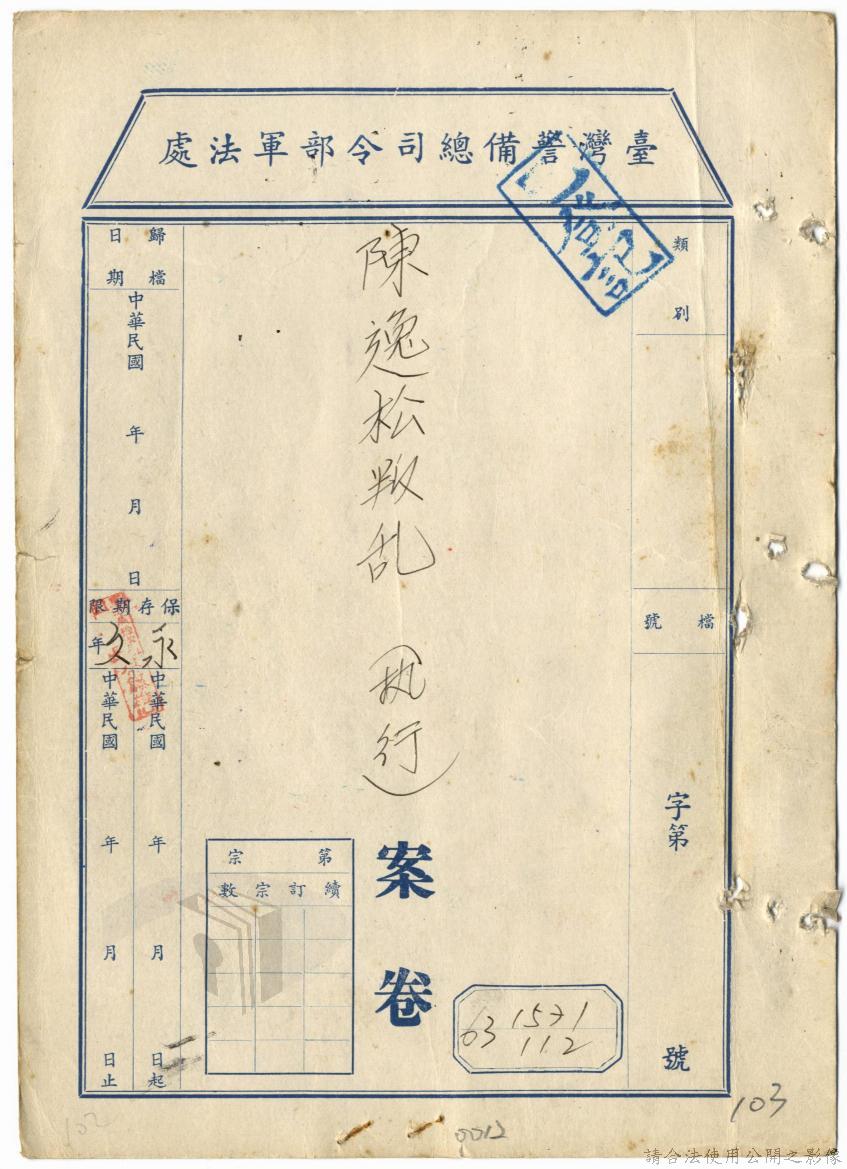 臺灣警備總司令部軍法處
類別
檔號
字第
號
陳逸松叛乱（执行）
案卷
1571
03
112
第宗
續訂宗數
歸檔日期
中華民國 年 月 日
保存期限
永久年
中華民國 年 月 日起
中華民國 年 月 日止
103
0012
102
請合法使用公開之影像